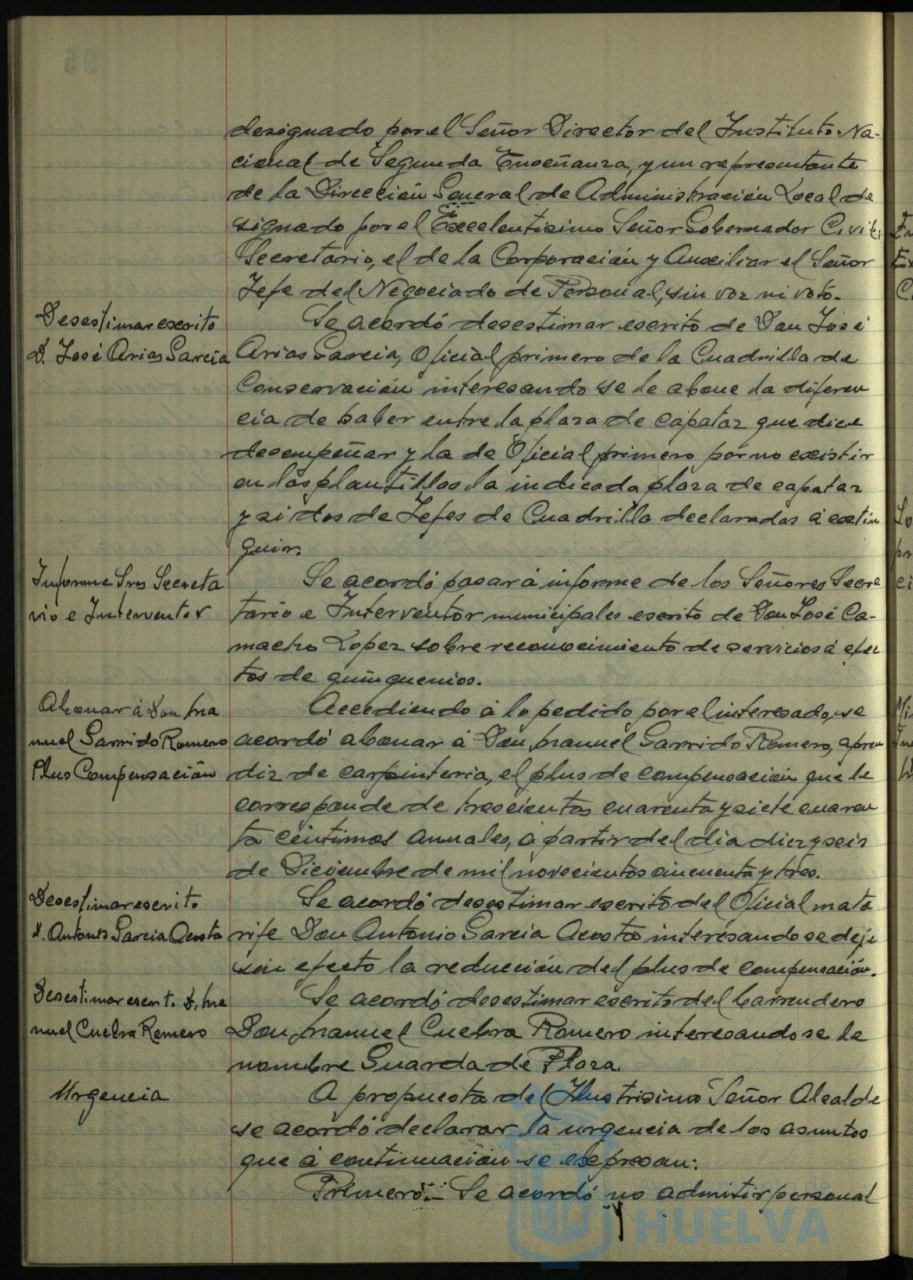 designado por el Señor Director del Instituto Na-
cional de Segunda Enseñanza, y un representante
de la Dirección General de Administración Local de
signado por el Excelentísimo Señor Gobernador Civil;
Secretario, el de la Corporación y Auxiliar el Señor
Jefe del Negociado de Personal, sin voz ni voto.
Desestimar escrito
D. José Arias García
Se acordó desestimar escrito de Don José
Arias García, Oficial primero de la Cuadrilla de
Conservación interesando se le abone la diferen
cia de haber entre la plaza de capataz que dice
desempeñar y la de Oficial primero por no existir
en las plantillas la indicada plaza de capataz
y si dos de Jefes de Cuadrilla declaradas á extin
guir.
Informe Sres Secreta
rio e Interventor
Se acordó pasar á informe de los Señores Secre
tario e Interventor municipales escrito de Don José Ca-
macho Lopez sobre reconocimiento de servicios á efec
tos de quinquenios.
Abonar á Don Ma
nuel Garrido Romero
Plus Compensación
Accediendo á lo pedido por el interesado, se
acordó abonar á Don Manuel Garrido Romero, apren
diz de carpintería, el plus de compensación que le
corresponde de trescientas cuarenta y siete cuaren
ta céntimos anuales, á partir del día diez y seis
de Diciembre de mil novecientos cincuenta y tres.
Desestimar escrito
D. Antonio García Acosta
Se acordó desestimar escrito del Oficial mata
rife Don Antonio García Acosta interesando se deje
sin efecto la reducción del plus de compensación.
Desestimar escrito D. Ma
nuel Cuebra Romero
Se acordó desestimar escrito del barrendero
Don Manuel Cuebra Romero interesando se le
nombre Guarda de Plaza
Urgencia
A propuesta del Ilustrísimo Señor Alcalde
se acordó declarar la urgencia de los asuntos
que á continuación se expresan:
Primero.- Se acordó no admitir personal
HUELVA